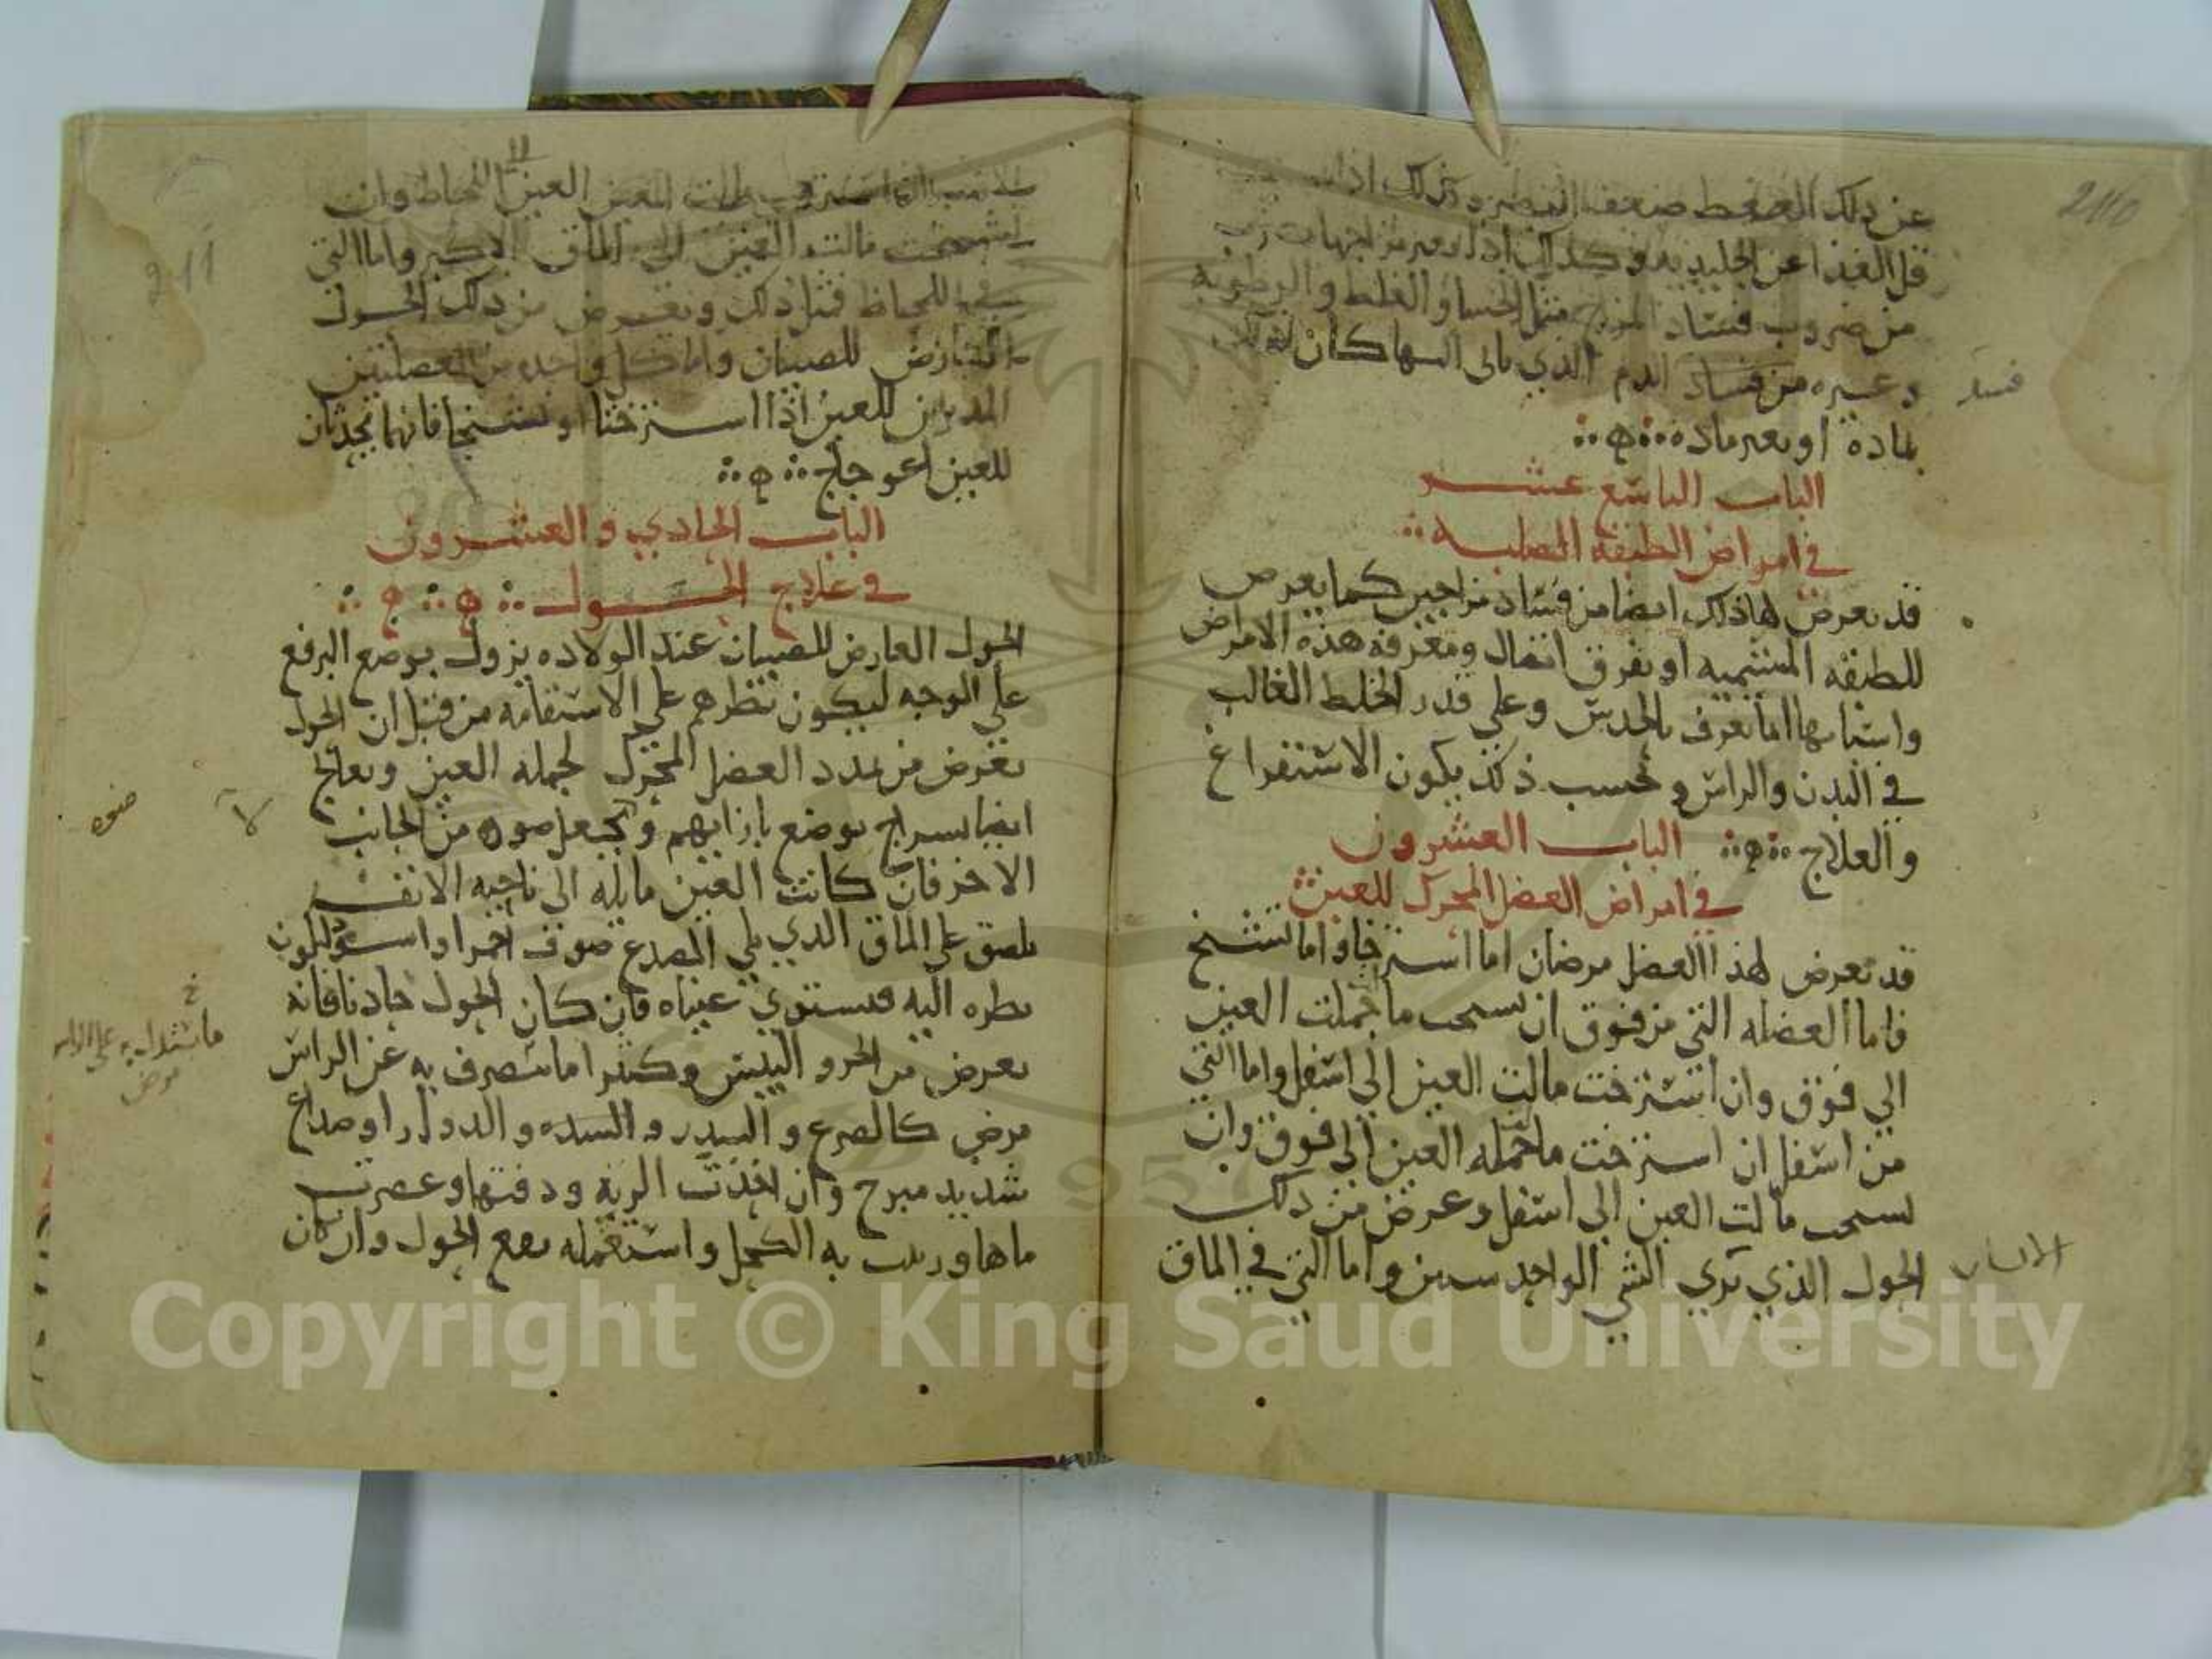 210
عن ذلك الضغط ضعف البصر وكذلك اذا
قل الغذا عن الجليديه وكذلك اذا
من ضروب فساد المزاج مثل الجسا والغلظ والرطوبه
وغيره من فساد الدم الذي ياتي اليها كان ذلك
بماده او بغير ماده
الباب التاسع عشر
في امراض الطبقه الصلبه
قد تعرض لها ذلك ايضا من فساد مزاجين كما يعرض
للطبقه المشيميه او تفرق اتصال ومعرفة هذه الامراض
واسبابها انما يعرف بالحدس وعلي قدر الخلط الغالب
في البدن والراس وبحسب ذلك يكون الاستفراغ
والعلاج الباب العشرون
في امراض العضل المحرك للعين
قد تعرض لهذا العضل مرضان اما استرخا واما تشنج
فاما العضله التي من فوق ان تشنجت مالت العين
الي فوق وان استرخت مالت العين الي اسفل واما التي
من اسفل ان استرخت مالت العين الي فوق وان
تشنجت مالت العين الي اسفل وعرض من ذلك
الحول الذي تري الشي الواحد شيين واما التي في الماق
211
العين اللحاظ وان
تشنجت مالت العين الي الماق الاكبر واما التي
في اللحاظ فمثل ذلك ويعرض من ذلك الحول
العارض للصبيان واما كل واحده من العضلتين
المديران للعين اذا استرختا او تشنجا فانهما يحدثان
للعين اعوجاج
الباب الحادي والعشرون
في علاج الحول
الحول العارض للصبيان عند الولاده يزول بوضع البرقع
علي الوجه ليكون نظرهم علي الاستقامه من قبل ان الحول
يعرض من تمدد العضل المحرك لجملة العين ويعالج
ايضا بسراج يوضع بازايهم ويجعل ضوه من الجانب
الاخر فان كانت العين مايله الي ناحيه الانف
يلصق علي الماق الذي يلي الصدغ صوف احمر او اسود ليكون
نظره اليه فتستوي عيناه فان كان الحول حادثا فانه
يعرض من الحر واليبس وكثيرا ما ينصرف به عن الراس
مرض كالصرع والسدر والسده والدوار او صداع
شديد مبرح وان اخذت الرية ودققتها وعصرت
ماها وربيت به الكحل واستعمله نفع الحول وان كان
ضوه
Copyright © King Saud University
1957